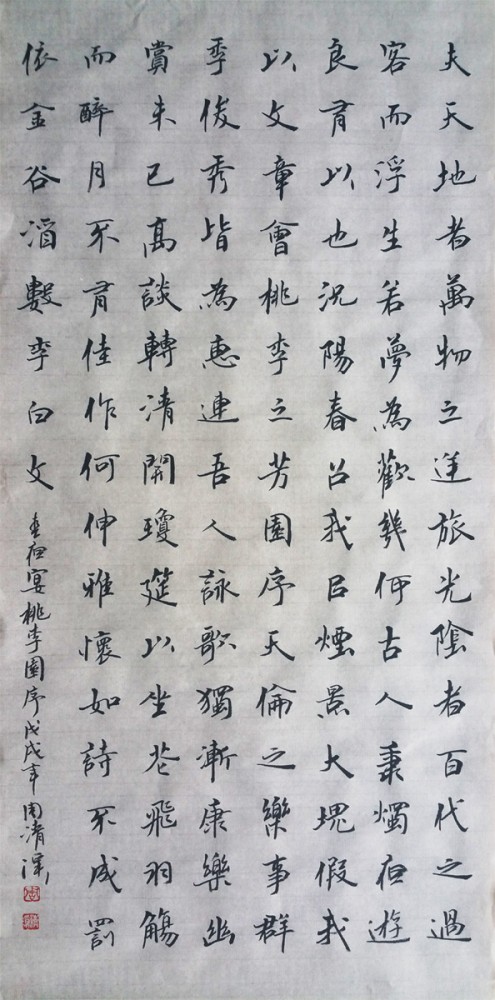 夫天地者萬物之逆旅光陰者百代之過
客而浮生若夢為歡幾何古人秉燭夜遊
良有以也況陽春召我以煙景大塊假我
以文章會桃李之芳園序天倫之樂事群
季俊秀皆為惠連吾人詠歌獨漸康樂幽
賞未已高談轉清開瓊筵以坐花飛羽觴
而醉月不有佳作何伸雅懷如詩不成罰
依金谷酒數李白文
春夜宴桃李園序戊戌年周清